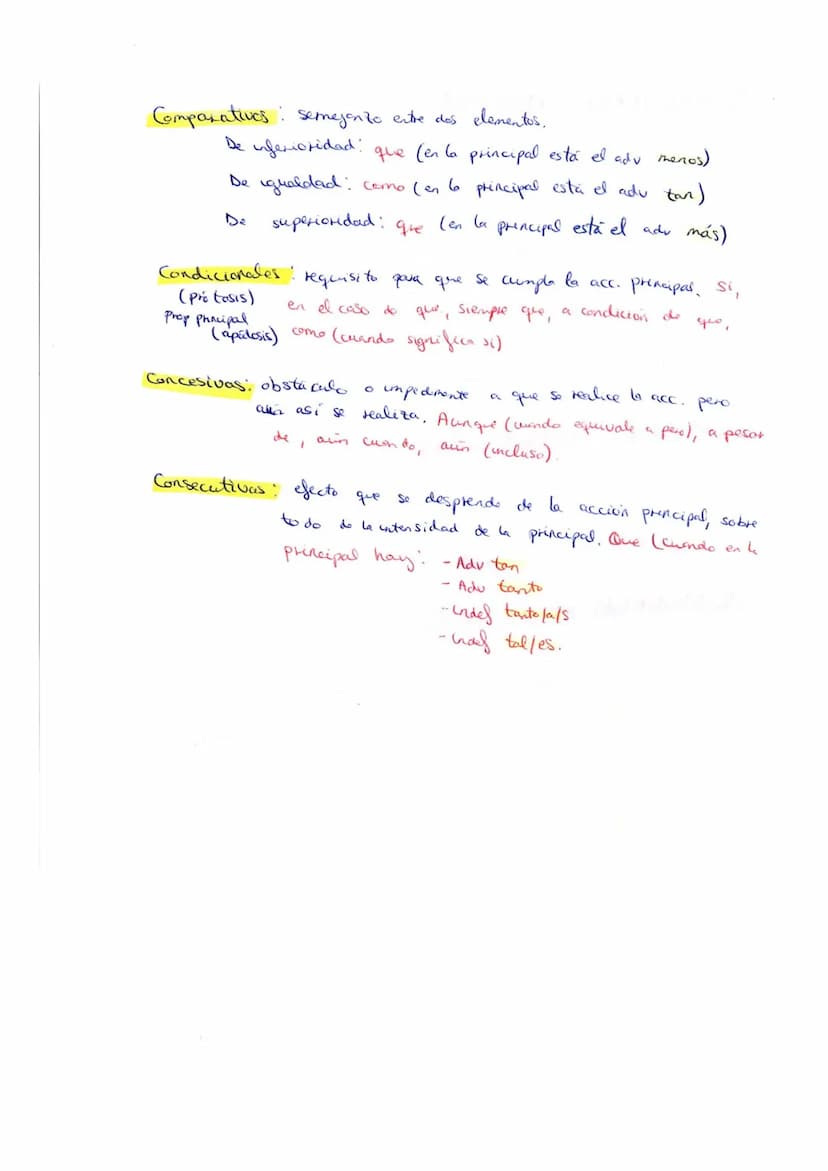 Comparativas: semejanza entre dos elementos.
De inferioridad: que (en la principal está el adv menos)
De igualdad: como (en la principal está el adv tan)
De superioridad: que (en la principal está el adv más)
Condicionales: requisito para que se cumpla la acc. principal. Si,
(prótosis) en el caso de que, siempre que, a condición de que,
Prop principal
(apódosis) como (cuando significa si)
Concesivas: obstáculo o impedimento a que se realice la acc. pero
aún así se realiza. Aunque (cuando equivale a pero), a pesar
de, aún cuando, aún (incluso).
Consecutivas: efecto que se desprende de la acción principal, sobre
todo de la intensidad de la principal. Que (cuando en la
principal hay: - Adv tan
- Adv tanto
- Indef tanto/a/s
- Indef tal/es.